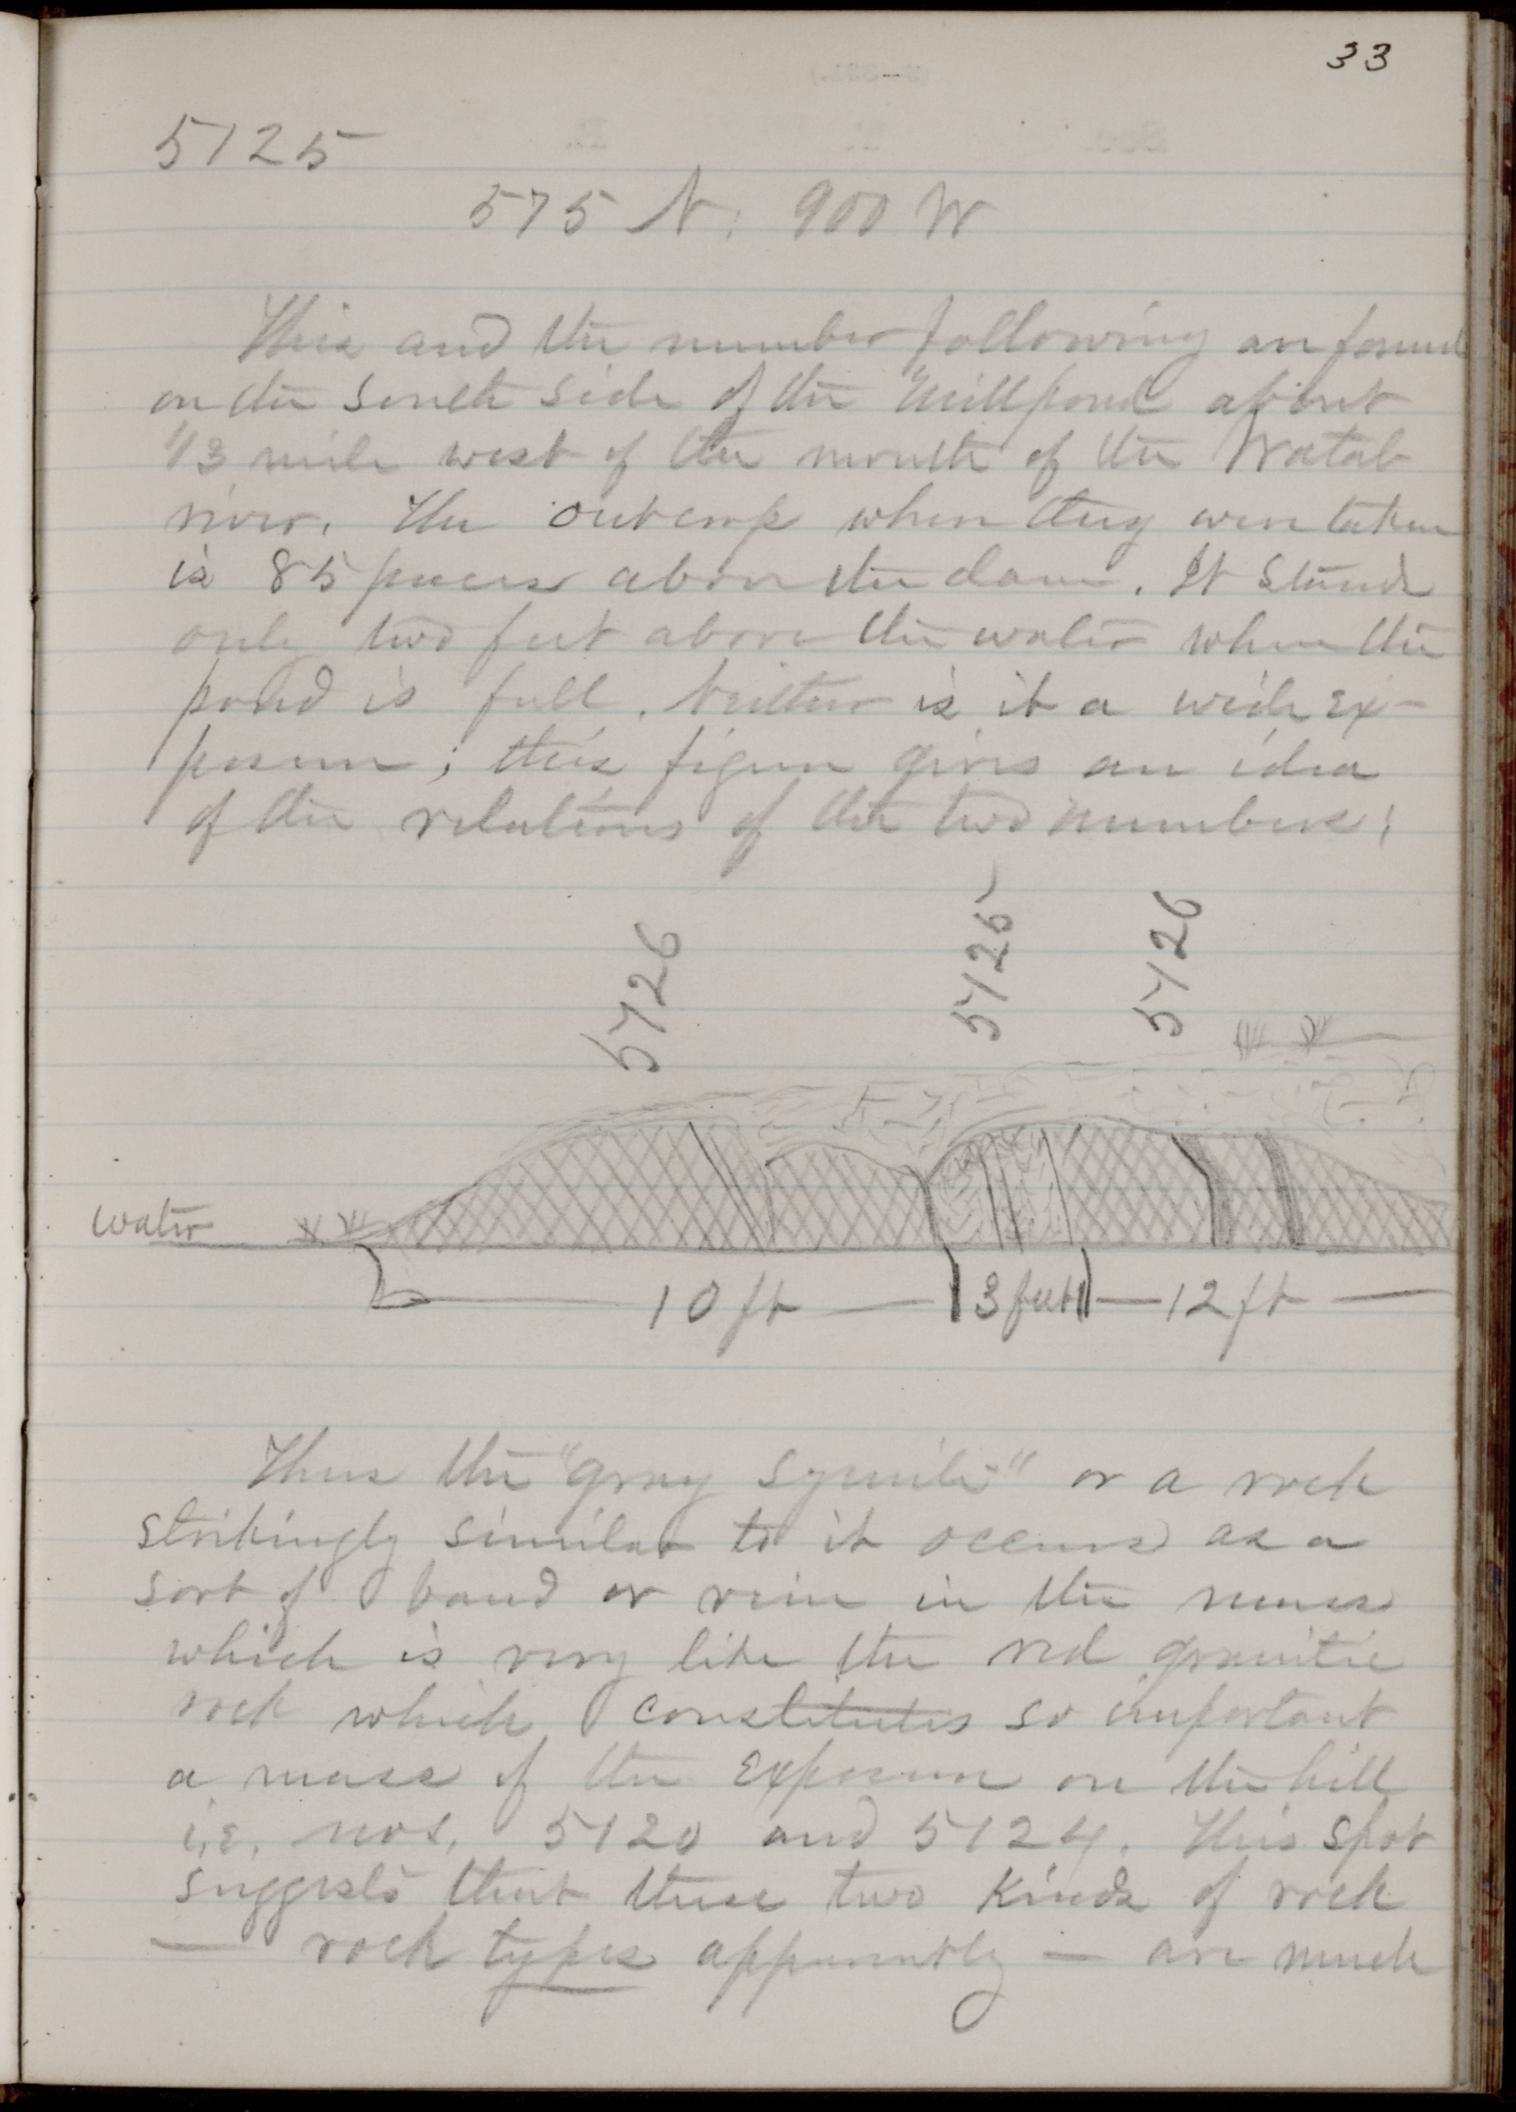 33
5125
575 N; 900 W
This and the number following are found
on the south side of the millpond about
1/3 mile west of the mouth of the Watab
river. The outcrop where they were taken
is 85 paces above the dam. It stands
only two feet above the water when the
pond is full. Neither is it a wide ex-
posure; this figure gives an idea
of the relations of the two numbers:
5126
5125
5126
water
10 ft
3 feet
12 ft
Thus the "gray syenite" or a rock
strikingly similar to it occurs as a
sort of band or vein in the mass
which is very like the red granitic
rock which constitutes so important
a mass of the exposure on the hill
i.e. nos. 5120 and 5124. This spot
suggests that these two kinds of rock
— rock types apparently — are much